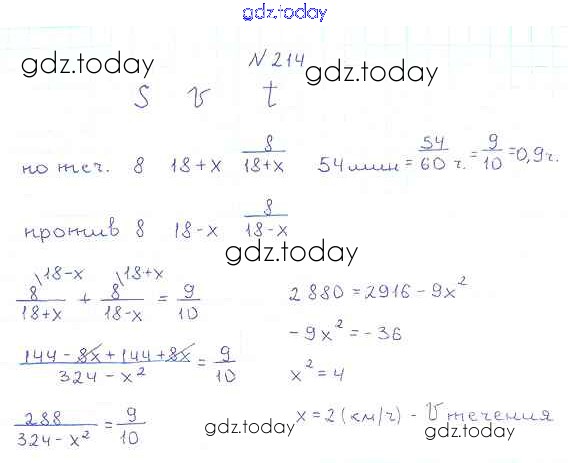 gdz.today
N 214
gdz.today gdz.today
S v t
по теч. 8 18+x 8/(18+x) 54 мин = 54/60 ч. = 9/10 = 0,9 ч.
против 8 18-x 8/(18-x)
gdz.today
8/(18+x) \18-x + 8/(18-x) \18+x = 9/10
2880 = 2916 - 9x²
-9x² = -36
(144 - 8x + 144 + 8x)/(324 - x²) = 9/10
x² = 4
288/(324 - x²) = 9/10
x = 2 (км/ч) - v течения
gdz.today gdz.today